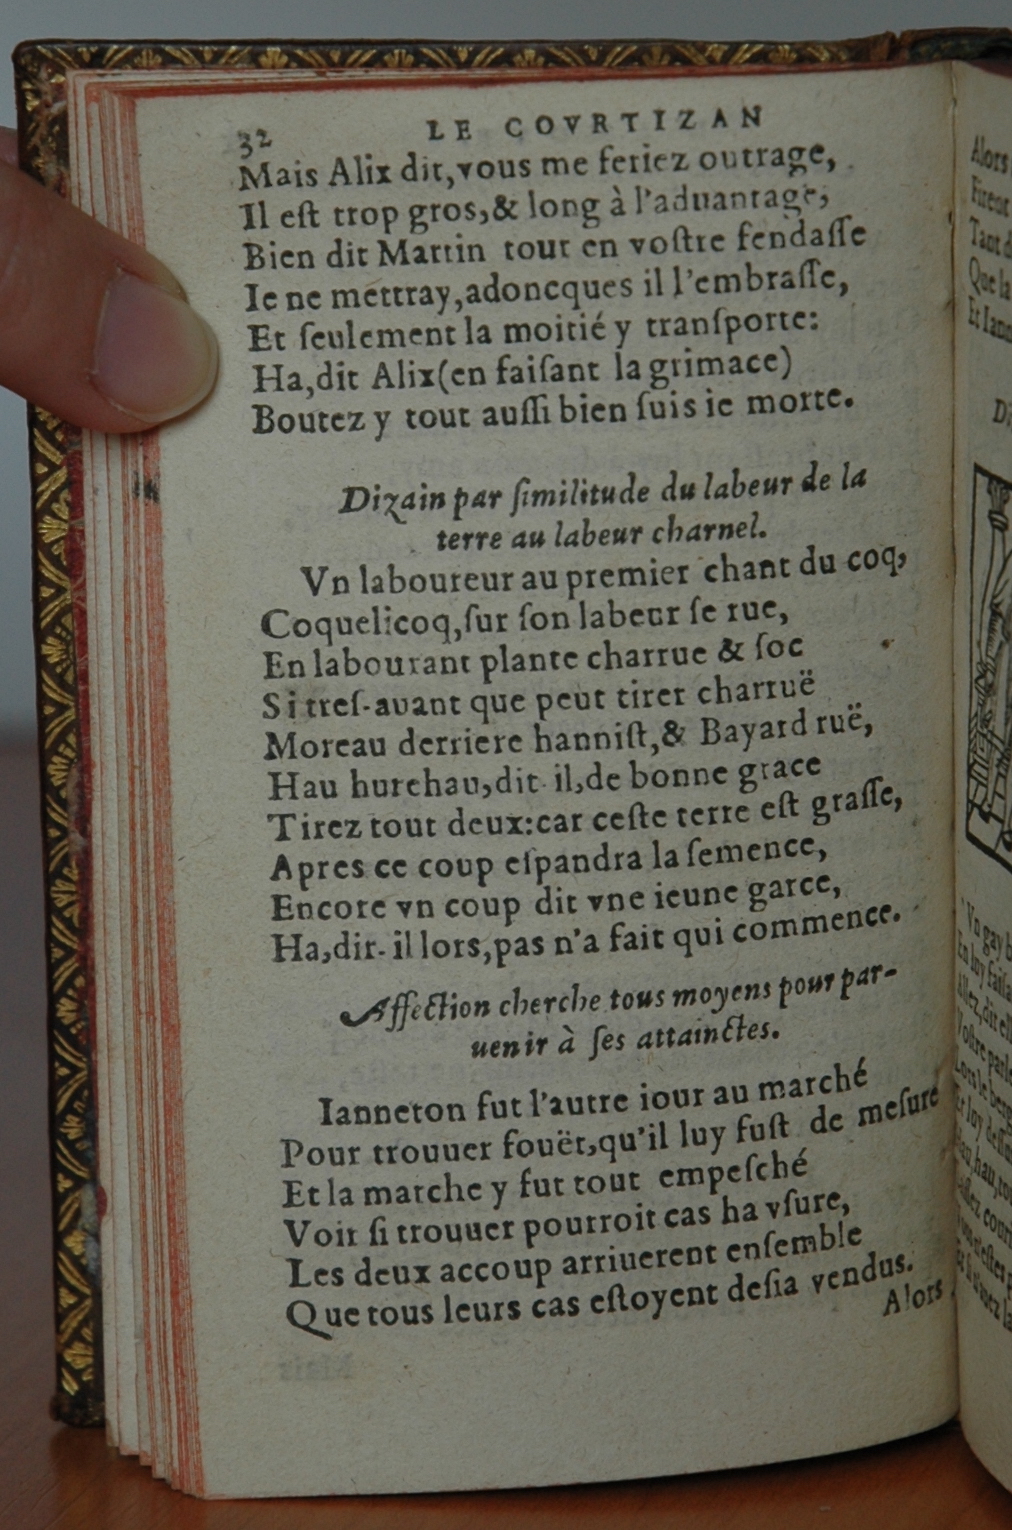 32 LE COVRTIZAN
Mais Alix dit,vous me feriez outrage,
Il eſt trop gros,& long à l'aduantage,
Bien dit Martin tout en voſtre fendaſſe
Ie ne mettray,adoncques il l'embraſſe,
Et ſeulement la moitié y tranſporte:
Ha,dit Alix(en faiſant la grimace)
Boutez y tout auſſi bien ſuis ie morte.
Dizain par ſimilitude du labeur de la
terre au labeur charnel.
Vn laboureur au premier chant du coq,
Coquelicoq,ſur ſon labeur ſe rue,
En labourant plante charrue & ſoc
Si treſ-auant que peut tirer charruë
Moreau derriere hanniſt,& Bayard ruë,
Hau hurehau,dit-il,de bonne grace
Tirez tout deux:car ceſte terre eſt graſſe,
Apres ce coup eſpandra la ſemence,
Encore vn coup dit vne ieune garce,
Ha,dit-il lors,pas n'a fait qui commence.
Affection cherche tous moyens pour par-
uenir à ſes attainctes.
Ianneton fut l'autre iour au marché
Pour trouuer fouët,qu'il luy fuſt de meſure
Et la marche y fut tout empeſché
Voir ſi trouuer pourroit cas ha vſure,
Les deux accoup arriuerent enſemble
Que tous leurs cas eſtoyent deſia vendus.
Alors
Alors
Firent
Tant d
Que la
Et Iann
Vn gay b
En luy faiſa
Allez,dit ell
Voſtre parle
Lors le berg